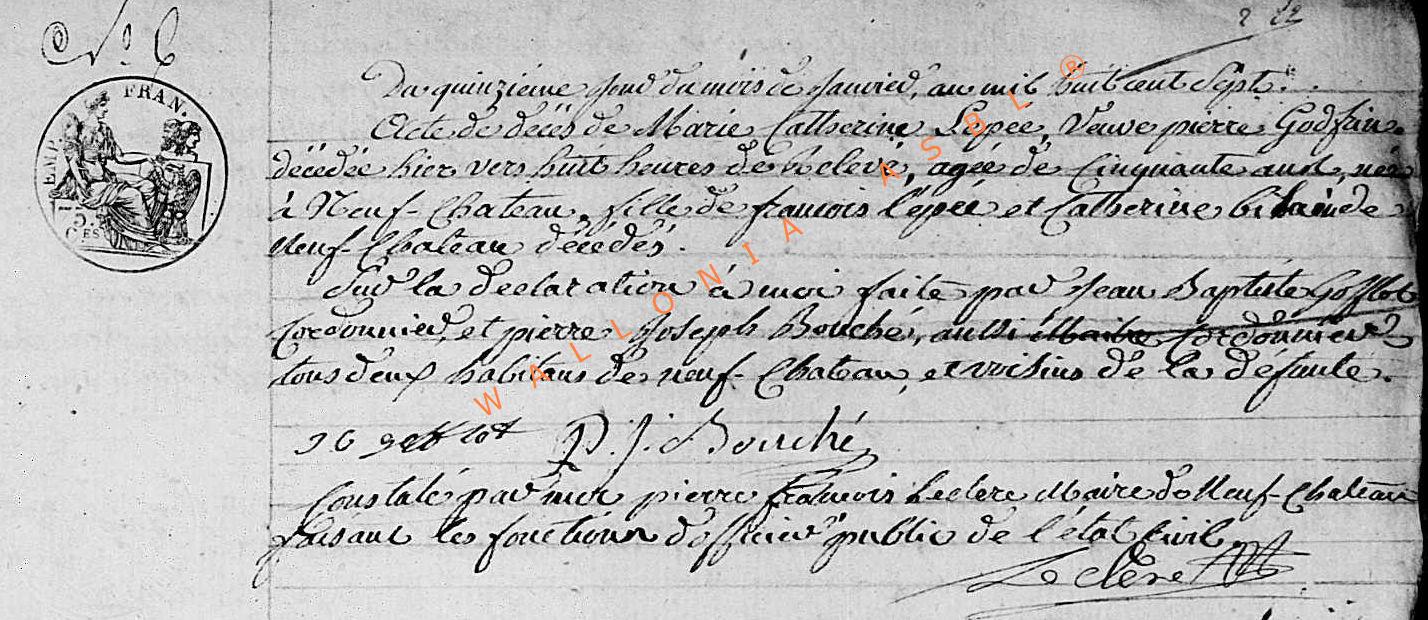 N.o 6
2 22
EMP. FRAN.
75
CES
Du quinzième jour du mois de Janvier, an mil huit cent Sept.
Acte de décès de Marie Catherine Lepée, Veuve pierre Godfrin.
décédée hier vers huit heures de Relevé, agée de Cinquante ans, née
à Neuf-Chateau, fille de francois l'épée et Catherine bihain de
Neuf-Chateau décédés.
Sur la declaration à moi faite par Jean Baptiste Gofflot
Cordonnier, et pierre Joseph Bouché, aussi Maitre Cordonnier
tous deux habitans de neuf-Chateau, et voisins de la défunte.
J B gofflot P. J. Bouché
Constaté par moi pierre francois Leclere Maire de Neuf-Chateau
faisant les fonctions d'officier public de l'état Civil.
Leclere
WALLONIA ASBL ®